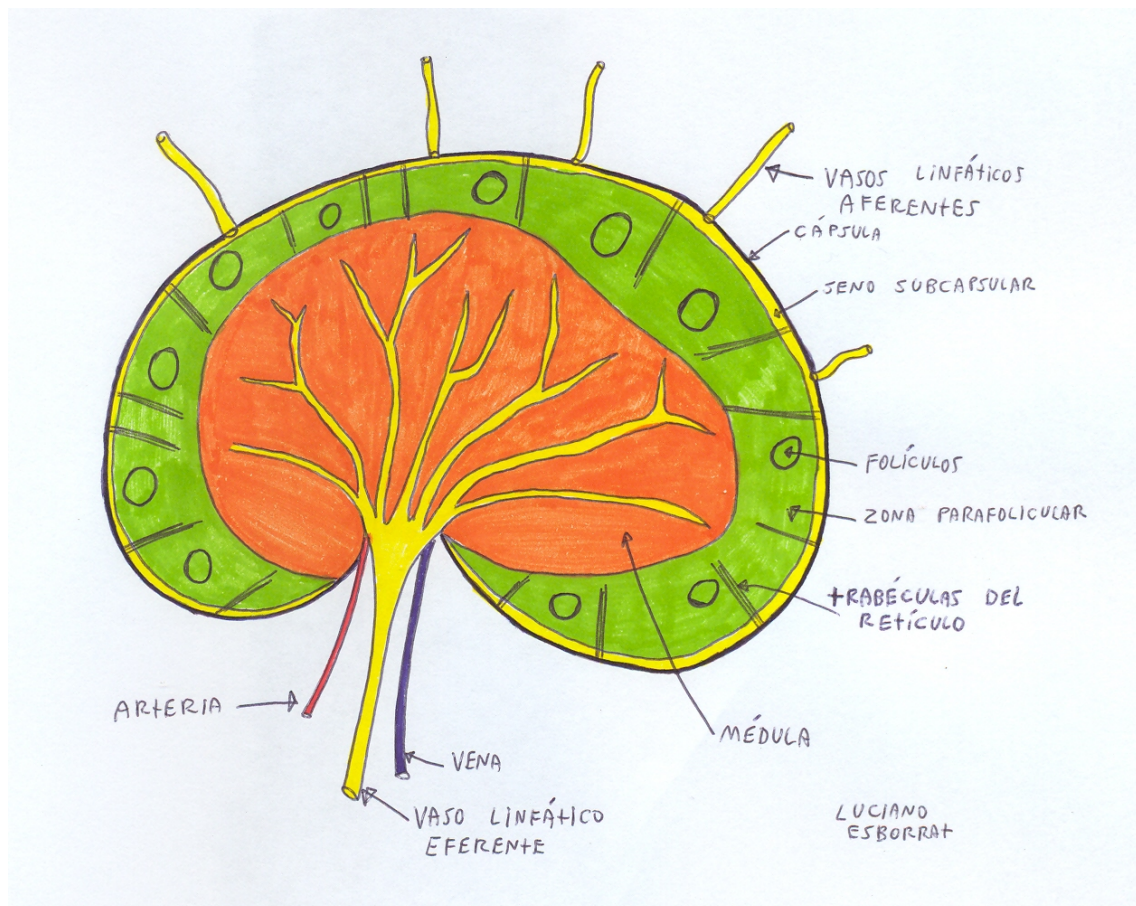 VASOS LINFÁTICOS
AFERENTES
CÁPSULA
SENO SUBCAPSULAR
FOLÍCULOS
ZONA PARAFOLICULAR
TRABÉCULAS DEL
RETÍCULO
ARTERIA
MÉDULA
VENA
VASO LINFÁTICO
EFERENTE
LUCIANO
ESBORRAT